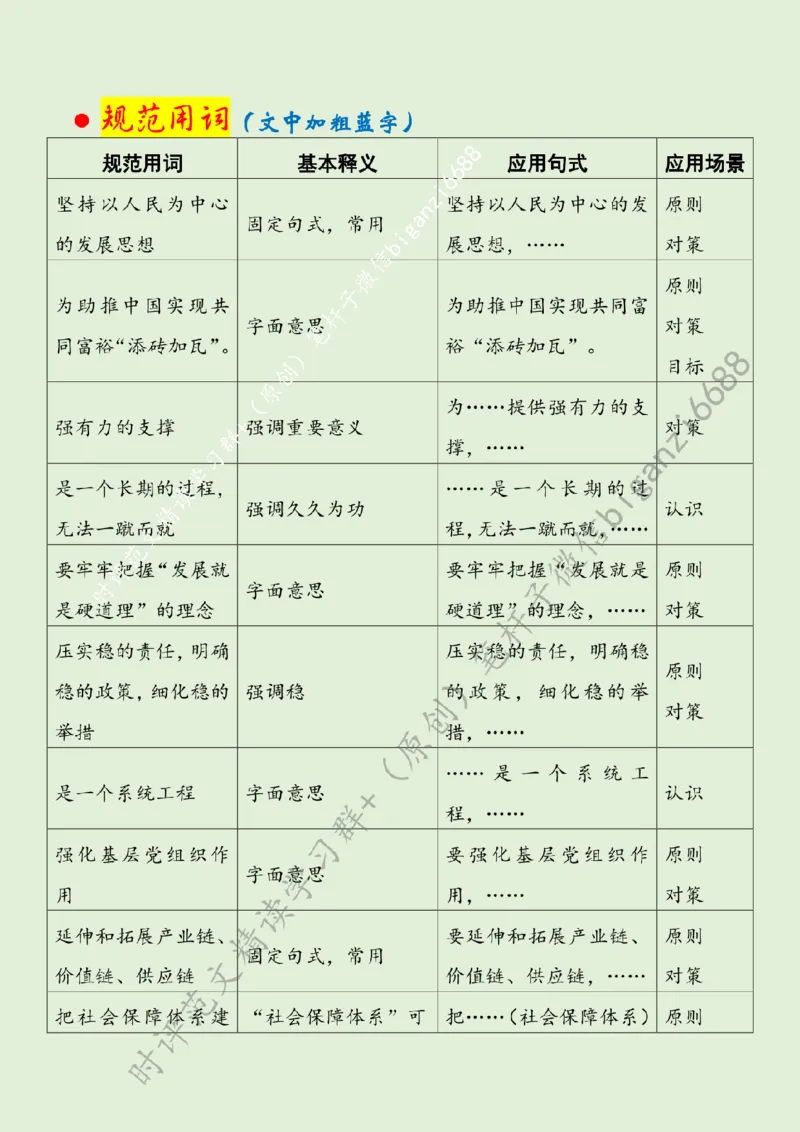 ● 规范用词（文中加粗蓝字）
规范用词 基本释义 应用句式 应用场景
坚持以人民为中心
的发展思想
固定句式，常用
坚持以人民为中心的发
展思想，……
原则
对策
为助推中国实现共
同富裕“添砖加瓦”。
字面意思
为助推中国实现共同富
裕“添砖加瓦”。
原则
对策
目标
强有力的支撑
强调重要意义
为……提供强有力的支
撑，……
对策
是一个长期的过程，
无法一蹴而就
强调久久为功
……是一个长期的过
程，无法一蹴而就，……
认识
要牢牢把握“发展就
是硬道理”的理念
字面意思
要牢牢把握“发展就是
硬道理”的理念，……
原则
对策
压实稳的责任，明确
稳的政策，细化稳的
举措
强调稳
压实稳的责任，明确稳
的政策，细化稳的举
措，……
原则
对策
是一个系统工程
字面意思
……是一个系统工
程，……
认识
强化基层党组织作
用
字面意思
要强化基层党组织作
用，……
原则
对策
延伸和拓展产业链、
价值链、供应链
固定句式，常用
要延伸和拓展产业链、
价值链、供应链，……
原则
对策
把社会保障体系建
“社会保障体系”可
把……（社会保障体系）
原则
时评范文精读学习群+（原创）笔杆子微信biganzi6688
时评范文精读学习群+（原创）笔杆子微信biganzi6688